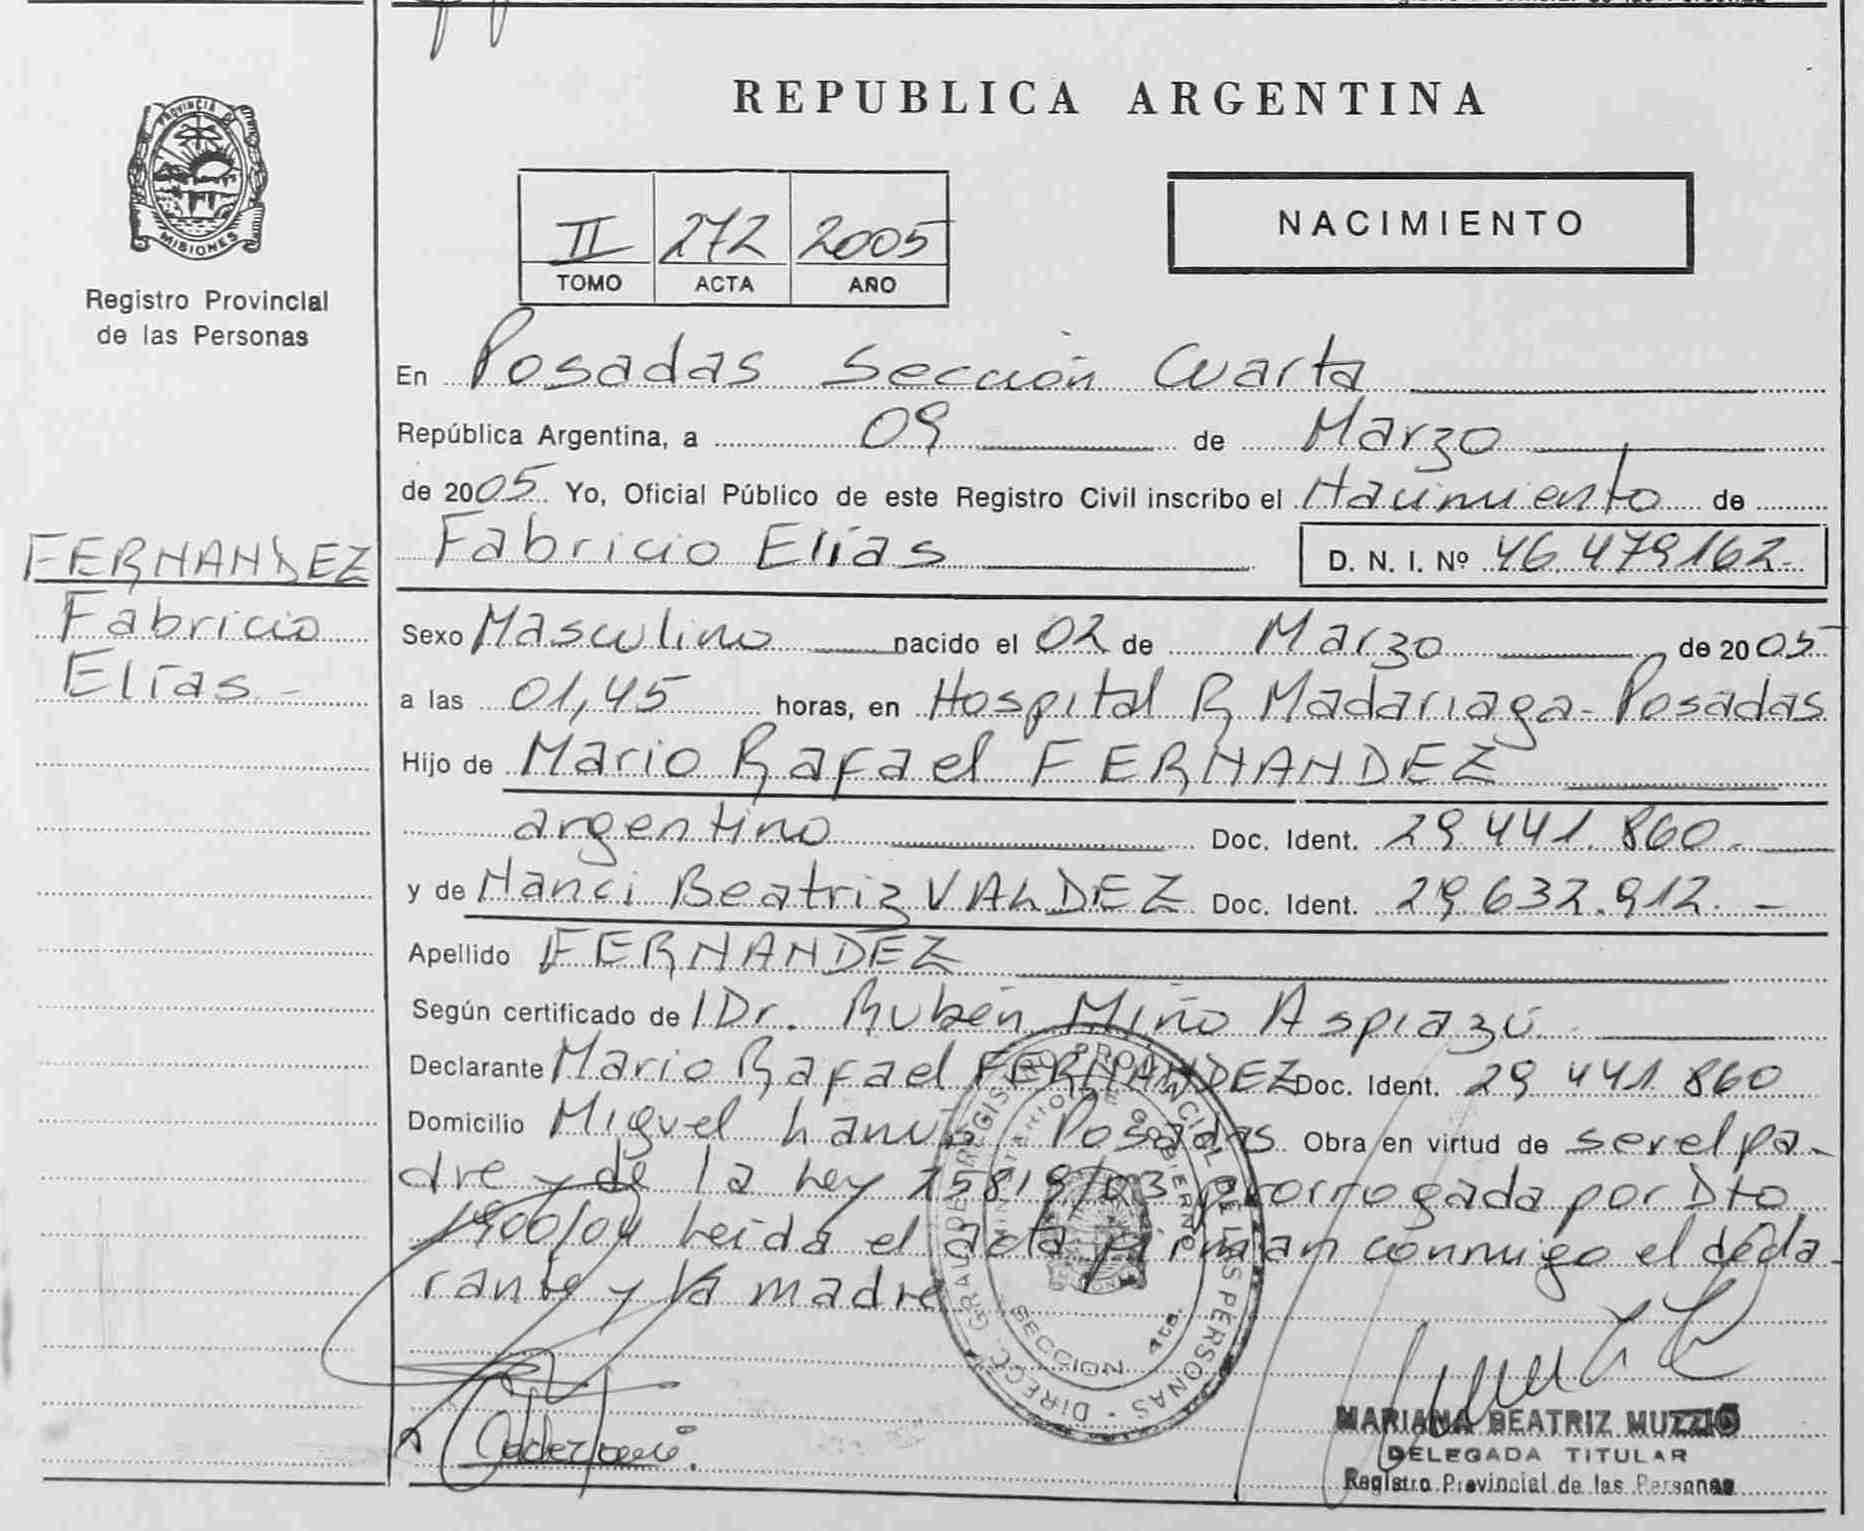 PROVINCIA DE
MISIONES
Registro Provincial
de las Personas
FERNANDEZ
Fabricio
Elías.-
REPUBLICA ARGENTINA
II 272 2005
TOMO ACTA AÑO
NACIMIENTO
En Posadas Sección Cuarta
República Argentina, a 09 de Marzo
de 2005 Yo, Oficial Público de este Registro Civil inscribo el Nacimiento de
Fabricio Elías D. N. I. Nº 46.479.162.-
Sexo Masculino nacido el 02 de Marzo de 2005
a las 01,45 horas, en Hospital R Madariaga - Posadas
Hijo de Mario Rafael FERNANDEZ
argentino Doc. Ident. 29.441.860.-
y de Nanci Beatriz VALDEZ Doc. Ident. 29.632.912.-
Apellido FERNANDEZ
Según certificado de l Dr. Rubén Miño Aspiazú.
Declarante Mario Rafael FERNANDEZ Doc. Ident. 29 441 860
Domicilio Miguel Lanus Posadas Obra en virtud de ser el pa-
dre y de la Ley 25819/03 prorrogada por Dto
1900/04 Leida el acta firman conmigo el decla-
rante y la madre
DIRECC. GRAL. DE REGISTRO PROVINCIAL DE LAS PERSONAS
MINISTERIO DE GOBIERNO
SECCION 4ta.
MARIANA BEATRIZ MUZZIO
DELEGADA TITULAR
Registro Provincial de las Personas